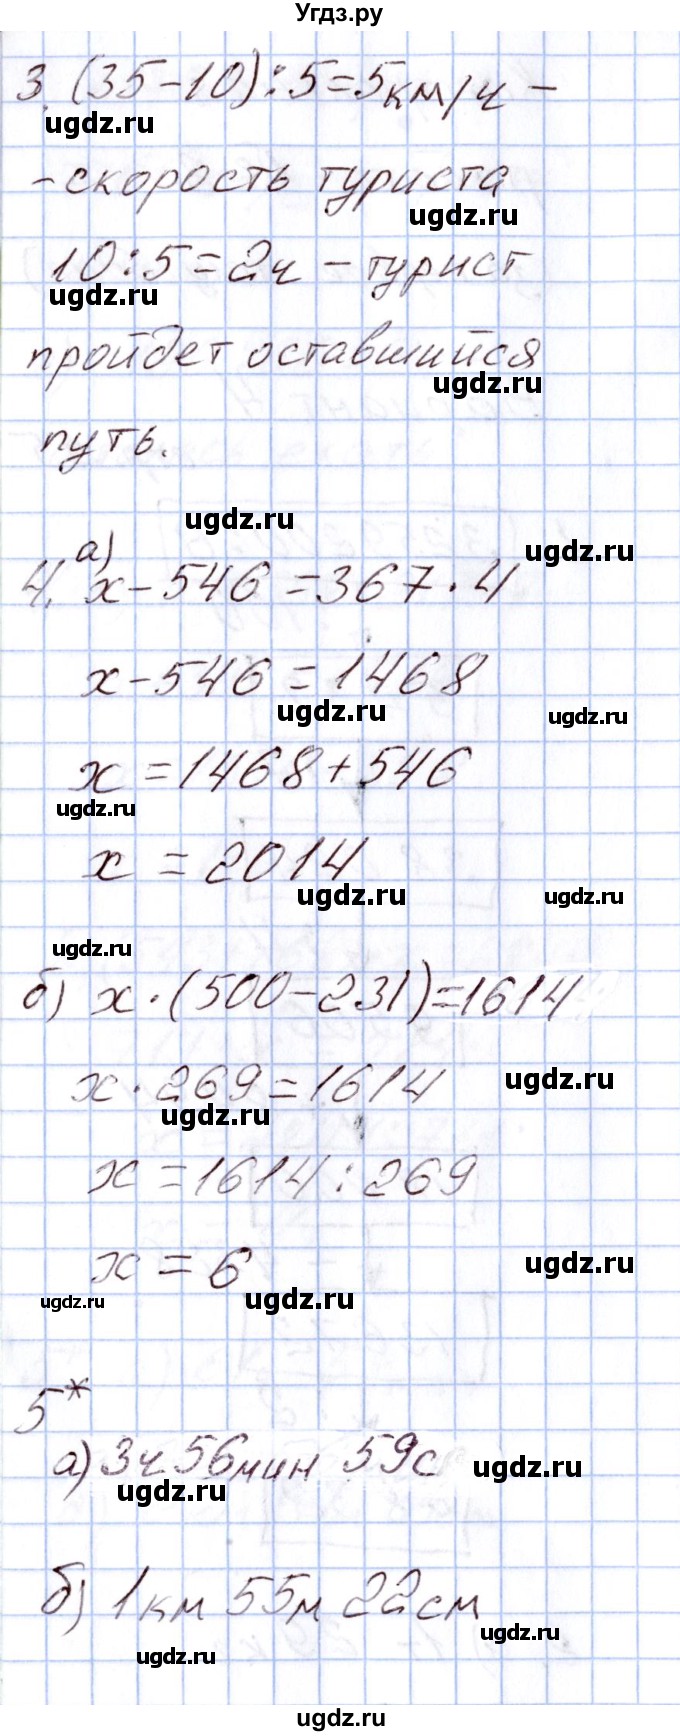 Угдз.ру
3. (35-10):5=5км/ч -
ugdz.ru
- скорость туриста
ugdz.ru
10:5=2ч - турист
ugdz.ru
пройдет оставшийся
ugdz.ru
путь.
ugdz.ru
ugdz.ru
а)
4. x-546=367·4
x-546=1468
ugdz.ru
ugdz.ru
x=1468+546
ugdz.ru
x=2014
ugdz.ru
ugdz.ru
ugdz.ru
б) x·(500-231)=1614
x·269=1614
ugdz.ru
ugdz.ru
x=1614:269
x=6
ugdz.ru
ugdz.ru
ugdz.ru
5*
а) 3ч 56мин 59с
ugdz.ru
ugdz.ru
б) 1км 55м 22см
ugdz.ru
ugdz.ru
ugdz.ru